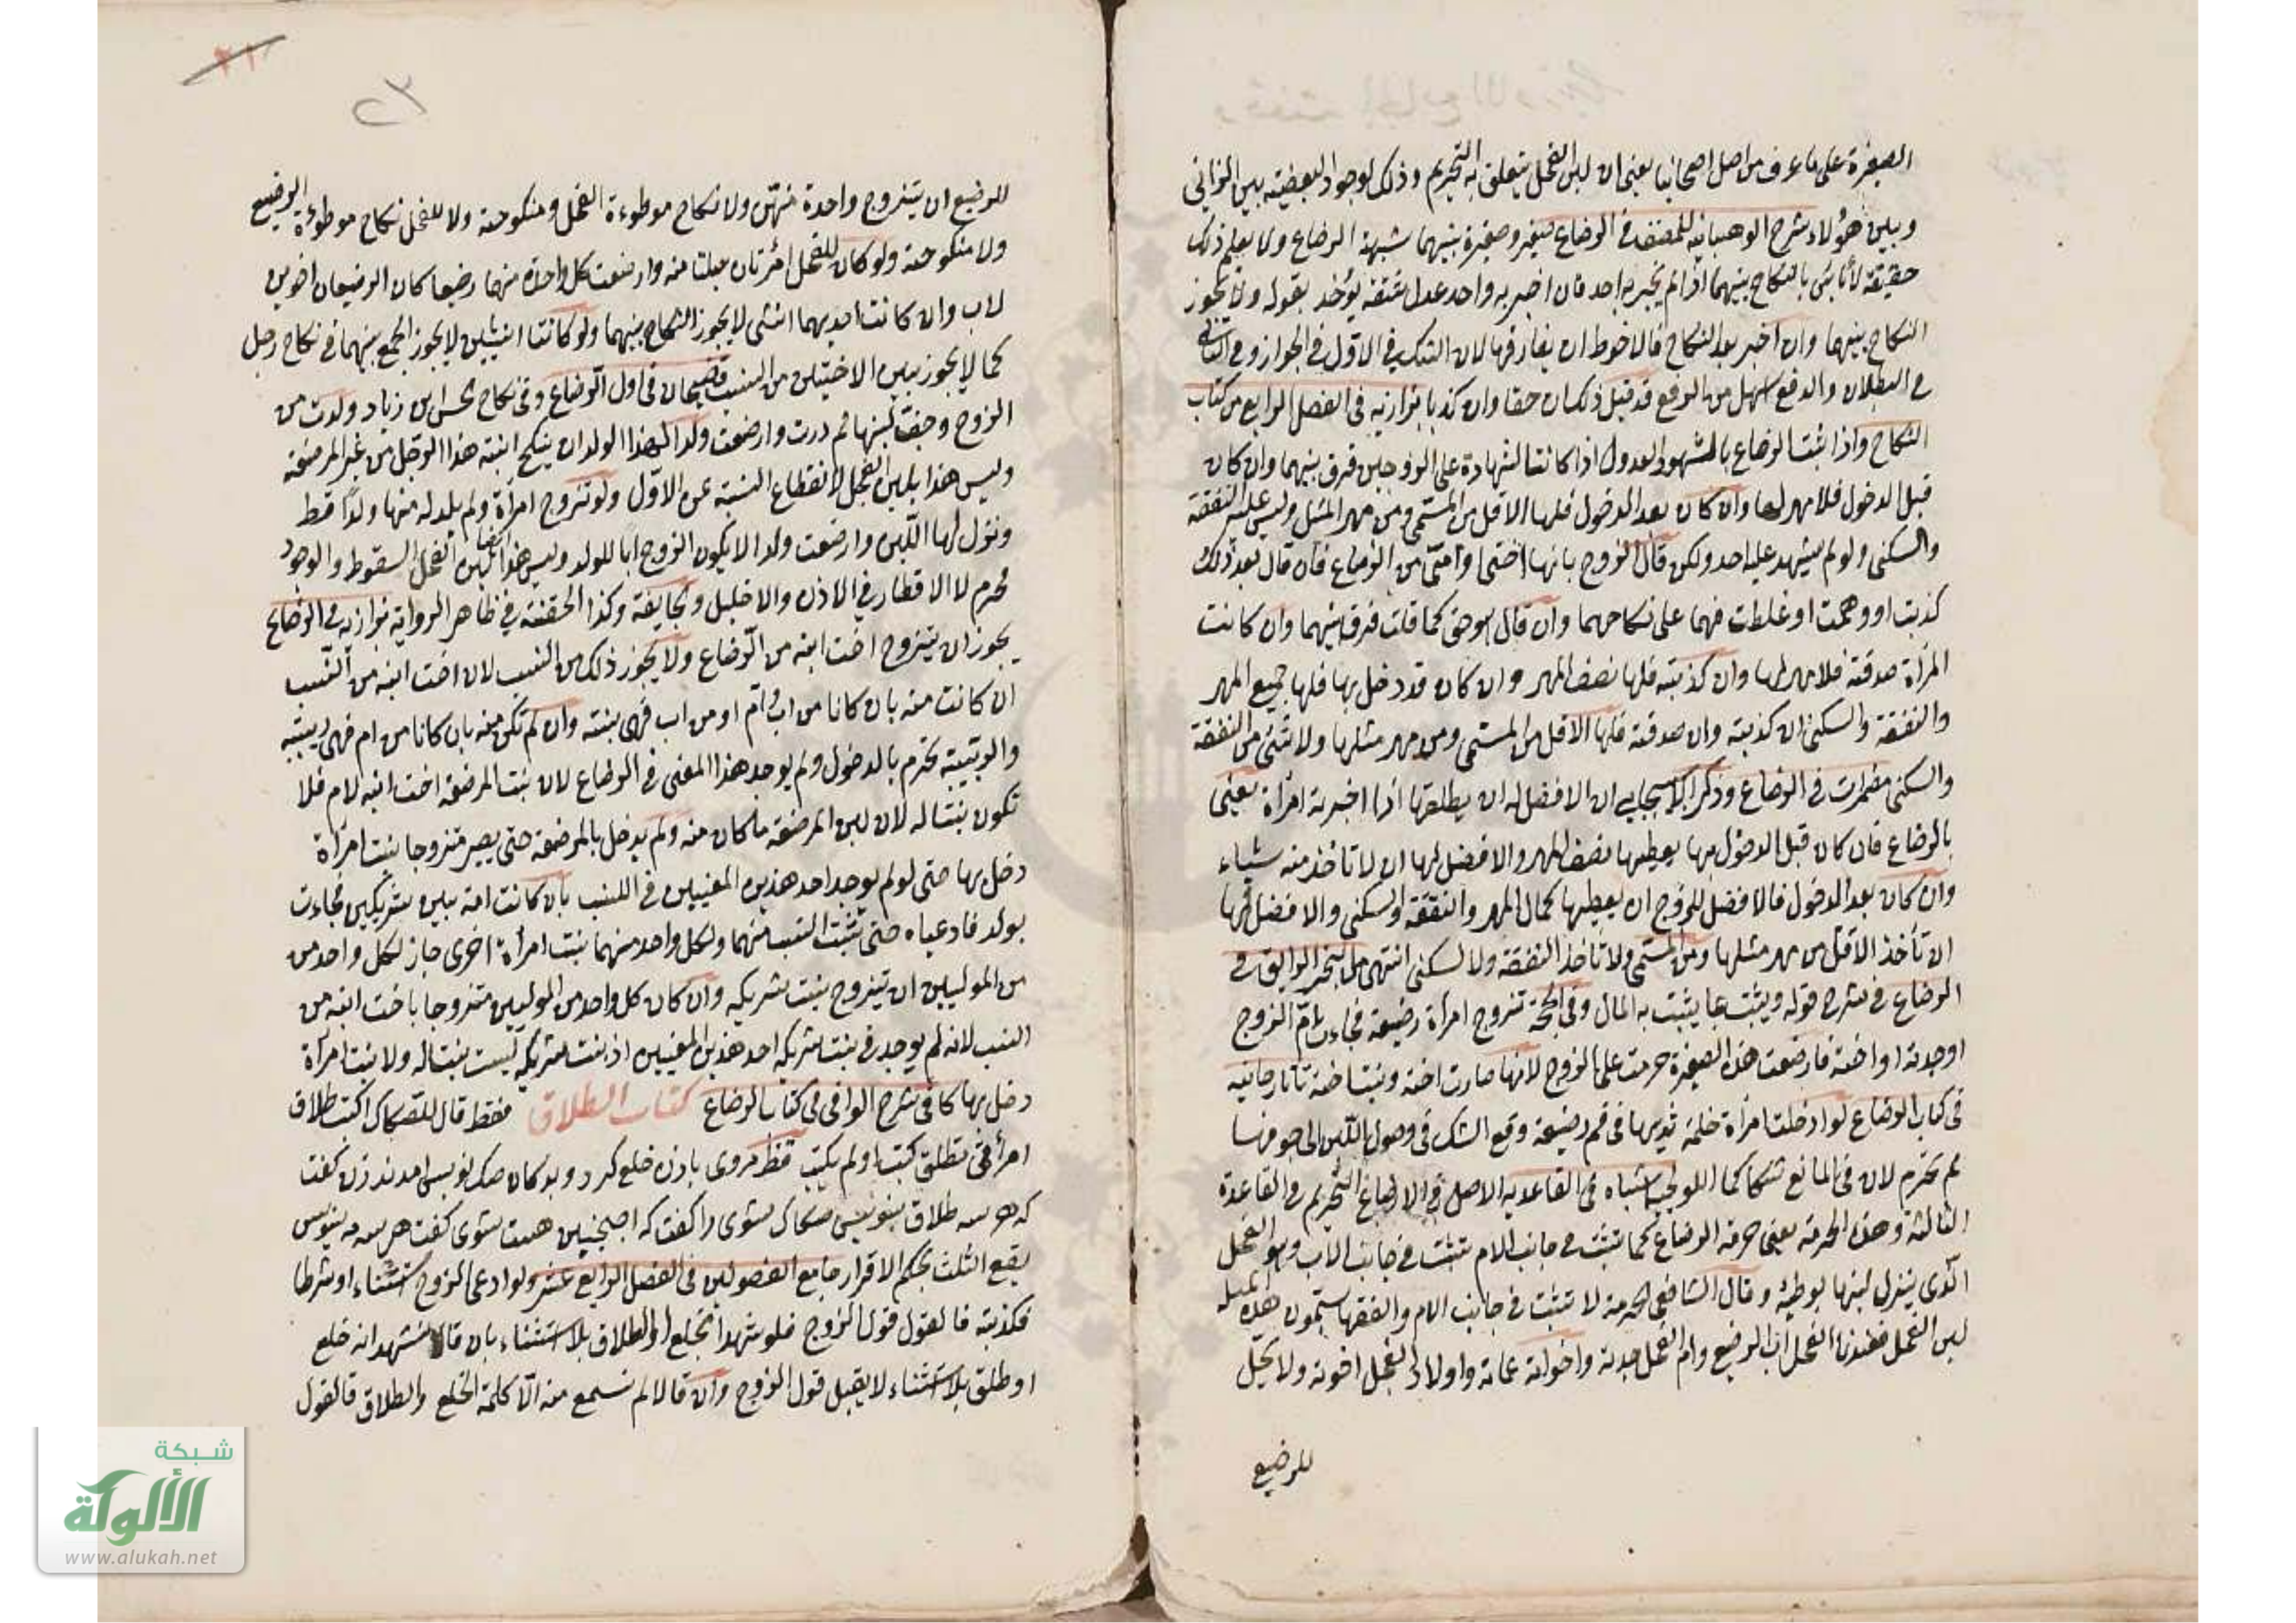 الصغيرة على ما عرف من اصل اصحابنا يعني ان لبن الفحل يتعلق به التحريم وذلك لوجود البعضية بين الزاني
وبين هؤلاء شرح الوهبانية للمصنف في الرضاع صغير وصغيرة بينهما شبهة الرضاع ولا يعلم ذلك
حقيقة لا بأس بالنكاح بينهما اذا لم يخبر به احد فان اخبر به واحد عدل ثقة يؤخذ بقوله ولا يجوز
النكاح بينهما وان اخبر بعد النكاح فالاحوط ان يفارقها لان الشك في الاول في الجواز وفي الثاني
في البطلان والدفع اسهل من الرفع قد قيل ذلك ان حقا وان كذبا بزازيه في الفصل الرابع من كتاب
النكاح واذا ثبت الرضاع بالشهود العدول اذا كانت الشهادة على الزوجين فرق بينهما وان كان
قبل الدخول فلا مهر لها وان كان بعد الدخول فلها الاقل من المسمى ومن مهر المثل وليس عليه النفقة
والسكنى ولو لم يشهد عليه احد ولكن قال الزوج بانها اختى او امتى من الرضاع فان قال بعد ذلك
كذبت او وهمت او غلطت فهما على نكاحهما وان قال هو حق كما قلت فرق بينهما وان كانت
المرأة صدقته فلا مهر لها وان كذبته فلها نصف المهر وان كان قد دخل بها فلها جميع المهر
والنفقة والسكنى ان كذبته وان صدقته فلها الاقل من المسمى ومن مهر مثلها ولا شئ من النفقة
والسكنى مضمرات في الرضاع وذكر الاسبيجابي ان الافضل له ان يطلقها اذا اخبرته امرأة يعنى
بالرضاع فان كان قبل الدخول بها يعطيها نصف المهر والافضل لها ان لا تاخذ منه شياء
وان كان بعد الدخول فالافضل للزوج ان يعطيها كمال المهر والنفقة والسكنى والافضل لها
ان تأخذ الاقل من مهر مثلها ومن المسمى ولا تاخذ النفقة ولا السكنى انتهى من البحر الرايق في
الرضاع في شرح قوله ويثبت بما يثبت به المال وفى الحجة تزوج امرأة رضيعة فجاءت ام الزوج
او جدته او اخته فارضعت هذه الصغيرة حرمت على الزوج لانها صارت اخته وبنت اخته تاتارخانيه
فى كتاب الرضاع لو ادخلت امرأة حلمة ثديها فى فم رضيعة وقع الشك فى وصول اللبن الى جوفها
لم تحرم لان فى المانع شكا كما فى الولوالجيه اشباه فى القاعدة الاصل في الابضاع التحريم في القاعدة
الثالثة وهذه الحرمة يعنى حرمة الرضاع كما تثبت في جانب الام تثبت في جانب الاب وهو الفحل
الذى ينزل لبنها بوطئه وقال الشافعي الحرمة لا تثبت في جانب الام والفقهاء يسمون هذه المسئله
لبن الفحل فعندنا الفحل اب الرضيع وام الفحل جدته واخواته عماته واولاد الفحل اخوته ولا يحل
للرضيع
للرضيع ان يتزوج واحدة منهن ولا نكاح موطوءة الفحل ومنكوحته ولا للفحل نكاح موطوءة الرضيع
ولا منكوحته ولو كان للفحل امرئتان حبلتا منه وارضعت كل واحدة منهما رضيعا كان الرضيعان اخوين
لاب وان كانت احديهما انثى لا يجوز النكاح بينهما ولو كانتا انثيين لا يجوز الجمع بينهما في نكاح رجل
كما لا يجوز بين الاختين من النسب قاضيخان فى اول الرضاع وفى نكاح الحسن بن زياد ولدت من
الزوج وجفت لبنها ثم درت وارضعت ولدا لهذا الولد ان ينكح ابنة هذا الرجل من غير المرضعة
وليس هذا بلبن الفحل لانقطاع النسبة عن الاول ولو تزوج امرأة ولم يلد له منها ولدا قط
ونزل لها اللبن وارضعت ولدا لا يكون الزوج ابا للولد وليس هذا ايضا لبن الفحل السقوط والوجود
محرم لا الاقطار في الاذن والاحليل والجايفة وكذا الحقنة في ظاهر الرواية بزازيه في الرضاع
يجوز ان يتزوج اخت ابنه من الرضاع ولا يجوز ذلك من النسب لان اخت ابنه من النسب
ان كانت منه بان كانا من اب وام او من اب فهى بنته وان لم تكن منه بان كانا من ام فهى ربيبته
والربيبة تحرم بالدخول ولم يوجد هذا المعنى فى الرضاع لان بنت المرضعة اخت ابنه لام فلا
تكون بنتا له لان لبن المرضعة ما كان منه ولم يدخل بالمرضعة حتى يصير متزوجا بنت امرأة
دخل بها حتى لو لم يوجد احد هذين المعنيين فى النسب بأن كانت امة بين شريكين فجاءت
بولد فادعياه حتى ثبت النسب منهما ولكل واحد منهما بنت امرأة اخرى جاز لكل واحد من
من الموليين ان يتزوج بنت شريكه وان كان كل واحد من الموليين متزوجا باخت ابنه من
النسب لانه لم يوجد في بنت شريكه احد هذين المعنيين اذ بنت شريكه ليست بنتا له ولا بنت امرأة
دخل بها كافى شرح الوافى فى كتاب الرضاع كتاب الطلاق فقط قال للصكاك اكتب طلاق
امرأتى تطلق كتب او لم يكتب قنظ مردى با زن خلع كرد وبدكان صك نويس امدند زن كفت
كه هر سه طلاق بنويس صكاك شوى را كفت كه اين چنين هست شوى كفت هر سه بنويس
يقع الثلث بحكم الاقرار جامع الفصولين فى الفصل الرابع عشر ولو ادعى الزوج استثناء او شرطا
فكذبته فالقول قول الزوج فلو شهدا بخلع او الطلاق بلا استثناء بان قالا نشهد انه خلع
او طلق بلا استثناء لا يقبل قول الزوج وان قالا لم نسمع منه الا كلمة الخلع والطلاق فالقول
شبكة
الألوكة
www.alukah.net